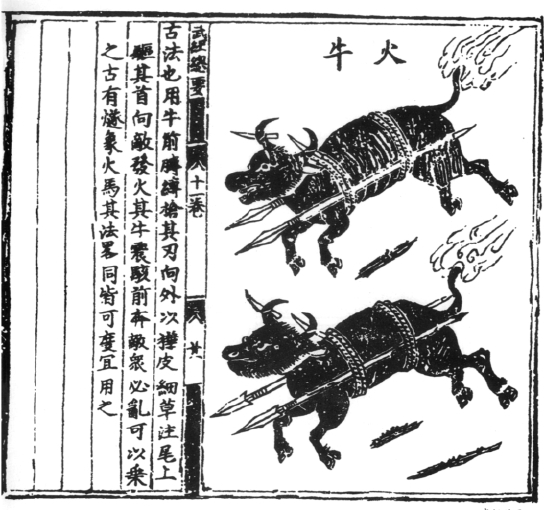 火牛
武經總要
八十一卷
八廿
古法也用牛前膊縛槍其刃向外以樺皮細草注尾上
驅其首向敵發火其牛震駭前奔敵衆必亂可以乘
之古有燧象火馬其法畧同皆可度宜用之